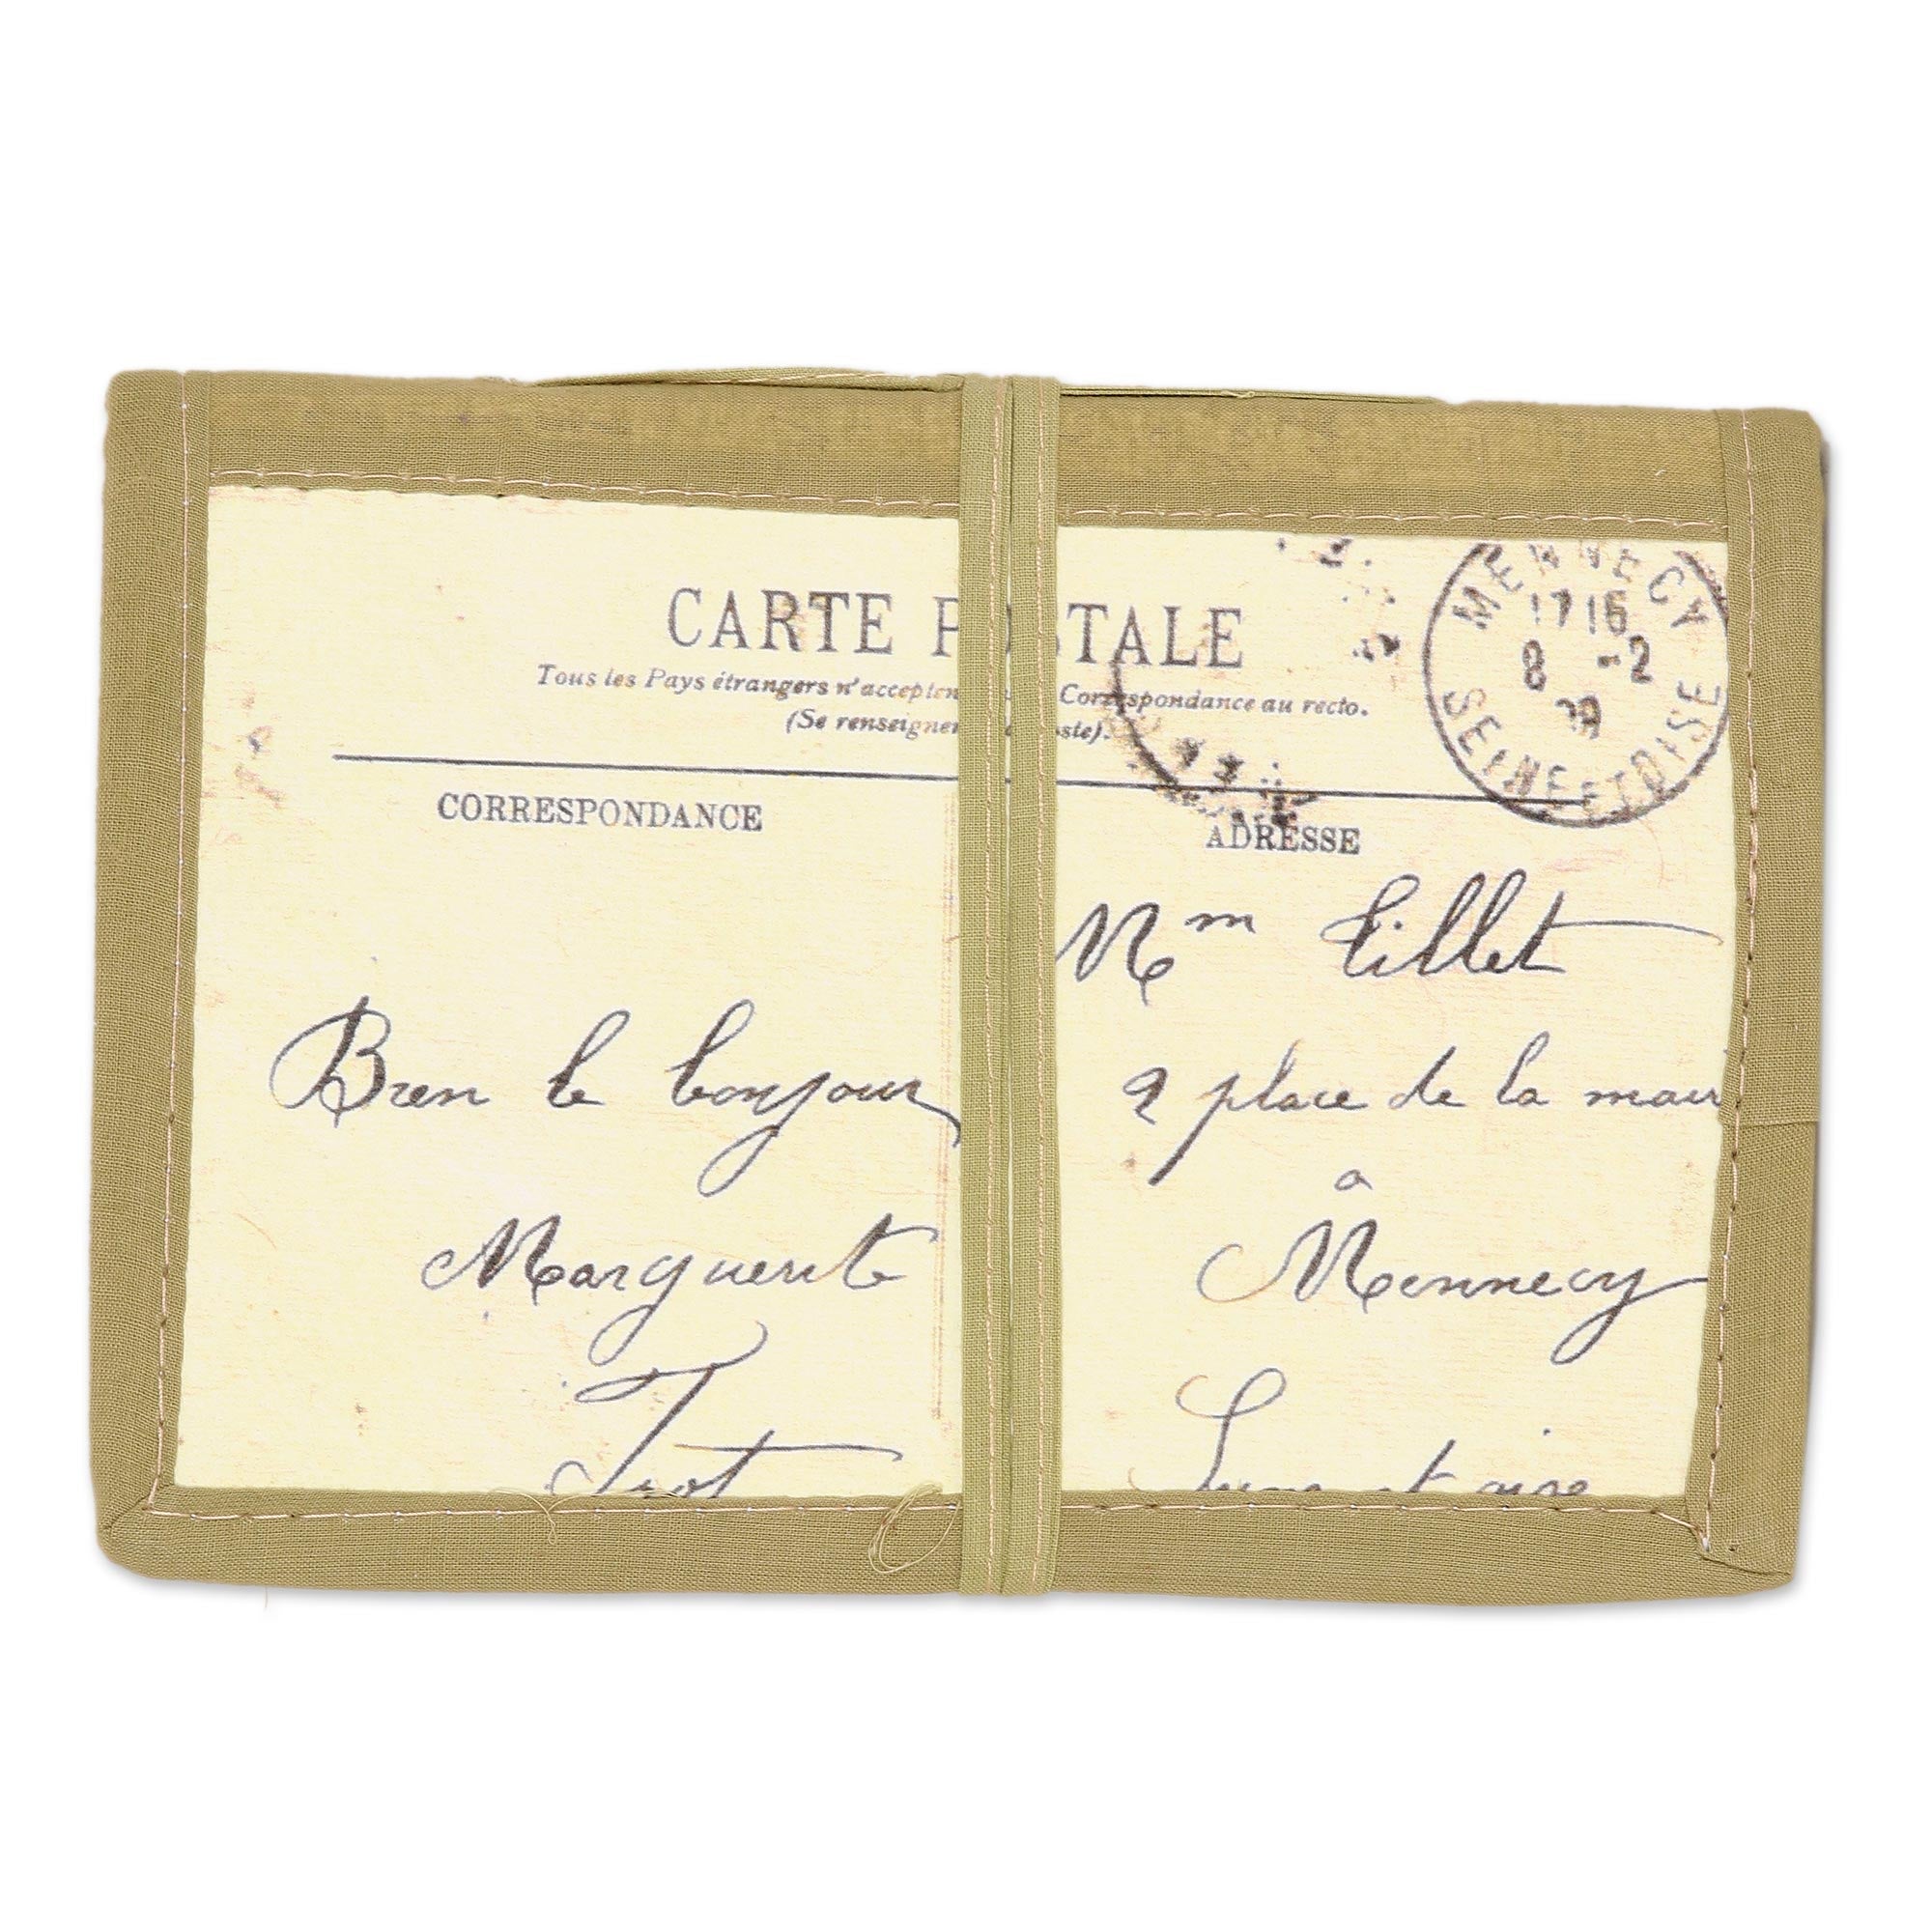 CARTE P STALE
Tous les Pays étrangers n'accepten Correspondance au recto.
(Se renseigner oste).
MENNECY
1716
8 -2
09
SEINE ET OISE
CORRESPONDANCE
ADRESSE
Bien le bonjour
Marguerite
Trot
Mm Tillet
9 place de la mair
a
Mennecy
Seine et oise